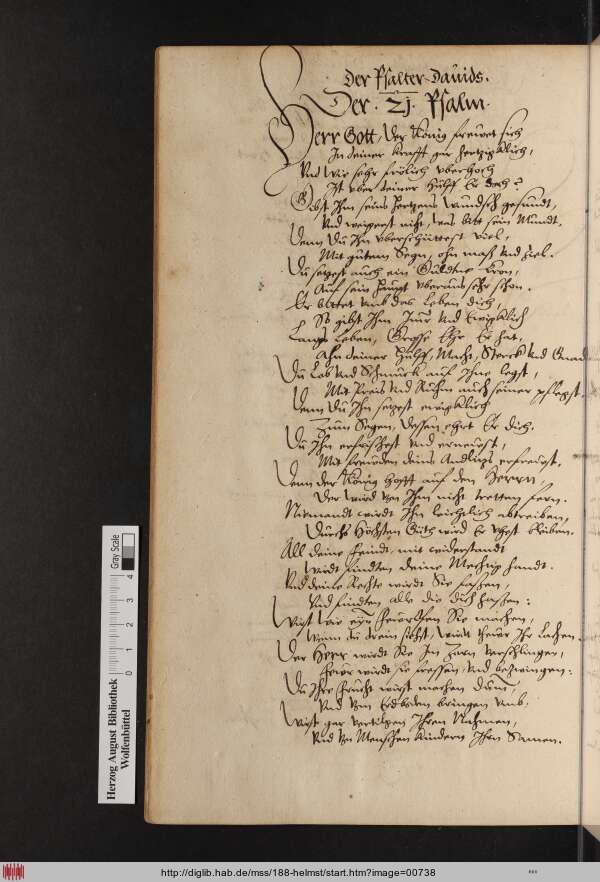 Der Psalter Dauids.
Der 21. Psalm.
Herr Gott, Der König frewet sich
In deiner krafft gar hertzigklich,
Vnd wie sehr frölich vberhoch
Ist vber deiner Hülff Er doch?
Gibst Ihm seins Hertzens wundsch gesundt,
Vnd weigerst nicht, was bitt sein Mundt.
Denn Du Ihn vberschüttest viel,
Mit gutem Segn, ohn maß vnd ziel.
Du setzest auch ein Güldne Kron,
Auf sein Haupt vberaus sehr schon.
Er bittet vmb das Leben dich,
So gibst Ihm Immr vnd Ewigklich
Langs Leben, Grosse Ehr Er hat,
Ahn deiner Hülff, Macht, Sterck vnd Gnad
Du Lob vnd Schmuck auf Ihne legst,
Mit Preis vnd Ruhm auch seiner pflegst.
Denn Du Ihn setzest ewigklich
Zum Segen, Dessen ehrt Er dich,
Du Ihn erfrischest vnd ernewst,
Mit frewden deins Andlitzs erfrewst.
Denn der König hofft auf den Herrn,
Der wird von Ihm nicht tretten fern.
Niemandt wirdt Ihn leichtlich abtreiben,
Durchs Höchsten Güth wird Er vhest bleiben.
All deine feindt, mit widerstandt
Wirdt findten deine Mechtig handt.
Vnd deine Rechte wirdt Sie fassen,
Vnd findten alle die dich hassen:
Wirst wie eyn feürOfen Sie machen,
Wenn du drein sihst, wirdt theür Ihr Lachen.
Der Herr wirdt Sie Im Zorn verschlingen,
Feür wirdt sie fressen vnd bezwingen:
Du Ihre frucht wirst machen Dum,
Vnd Von Erdboden bringen vmb,
Wirst gar vertilgen Ihren Nahmen,
Vnd von Menschen Kindern Ihrn Samen.
Herzog August Bibliothek
Wolfenbüttel
Gray Scale
0 1 2 3 4
http://diglib.hab.de/mss/188-helmst/start.htm?image=00738